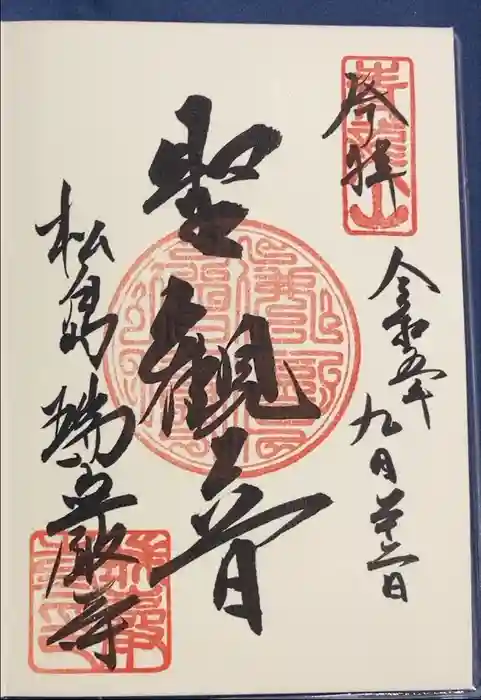 奉拝
青龍山
令和五年九月廿二日
聖観世音
松島瑞巌寺